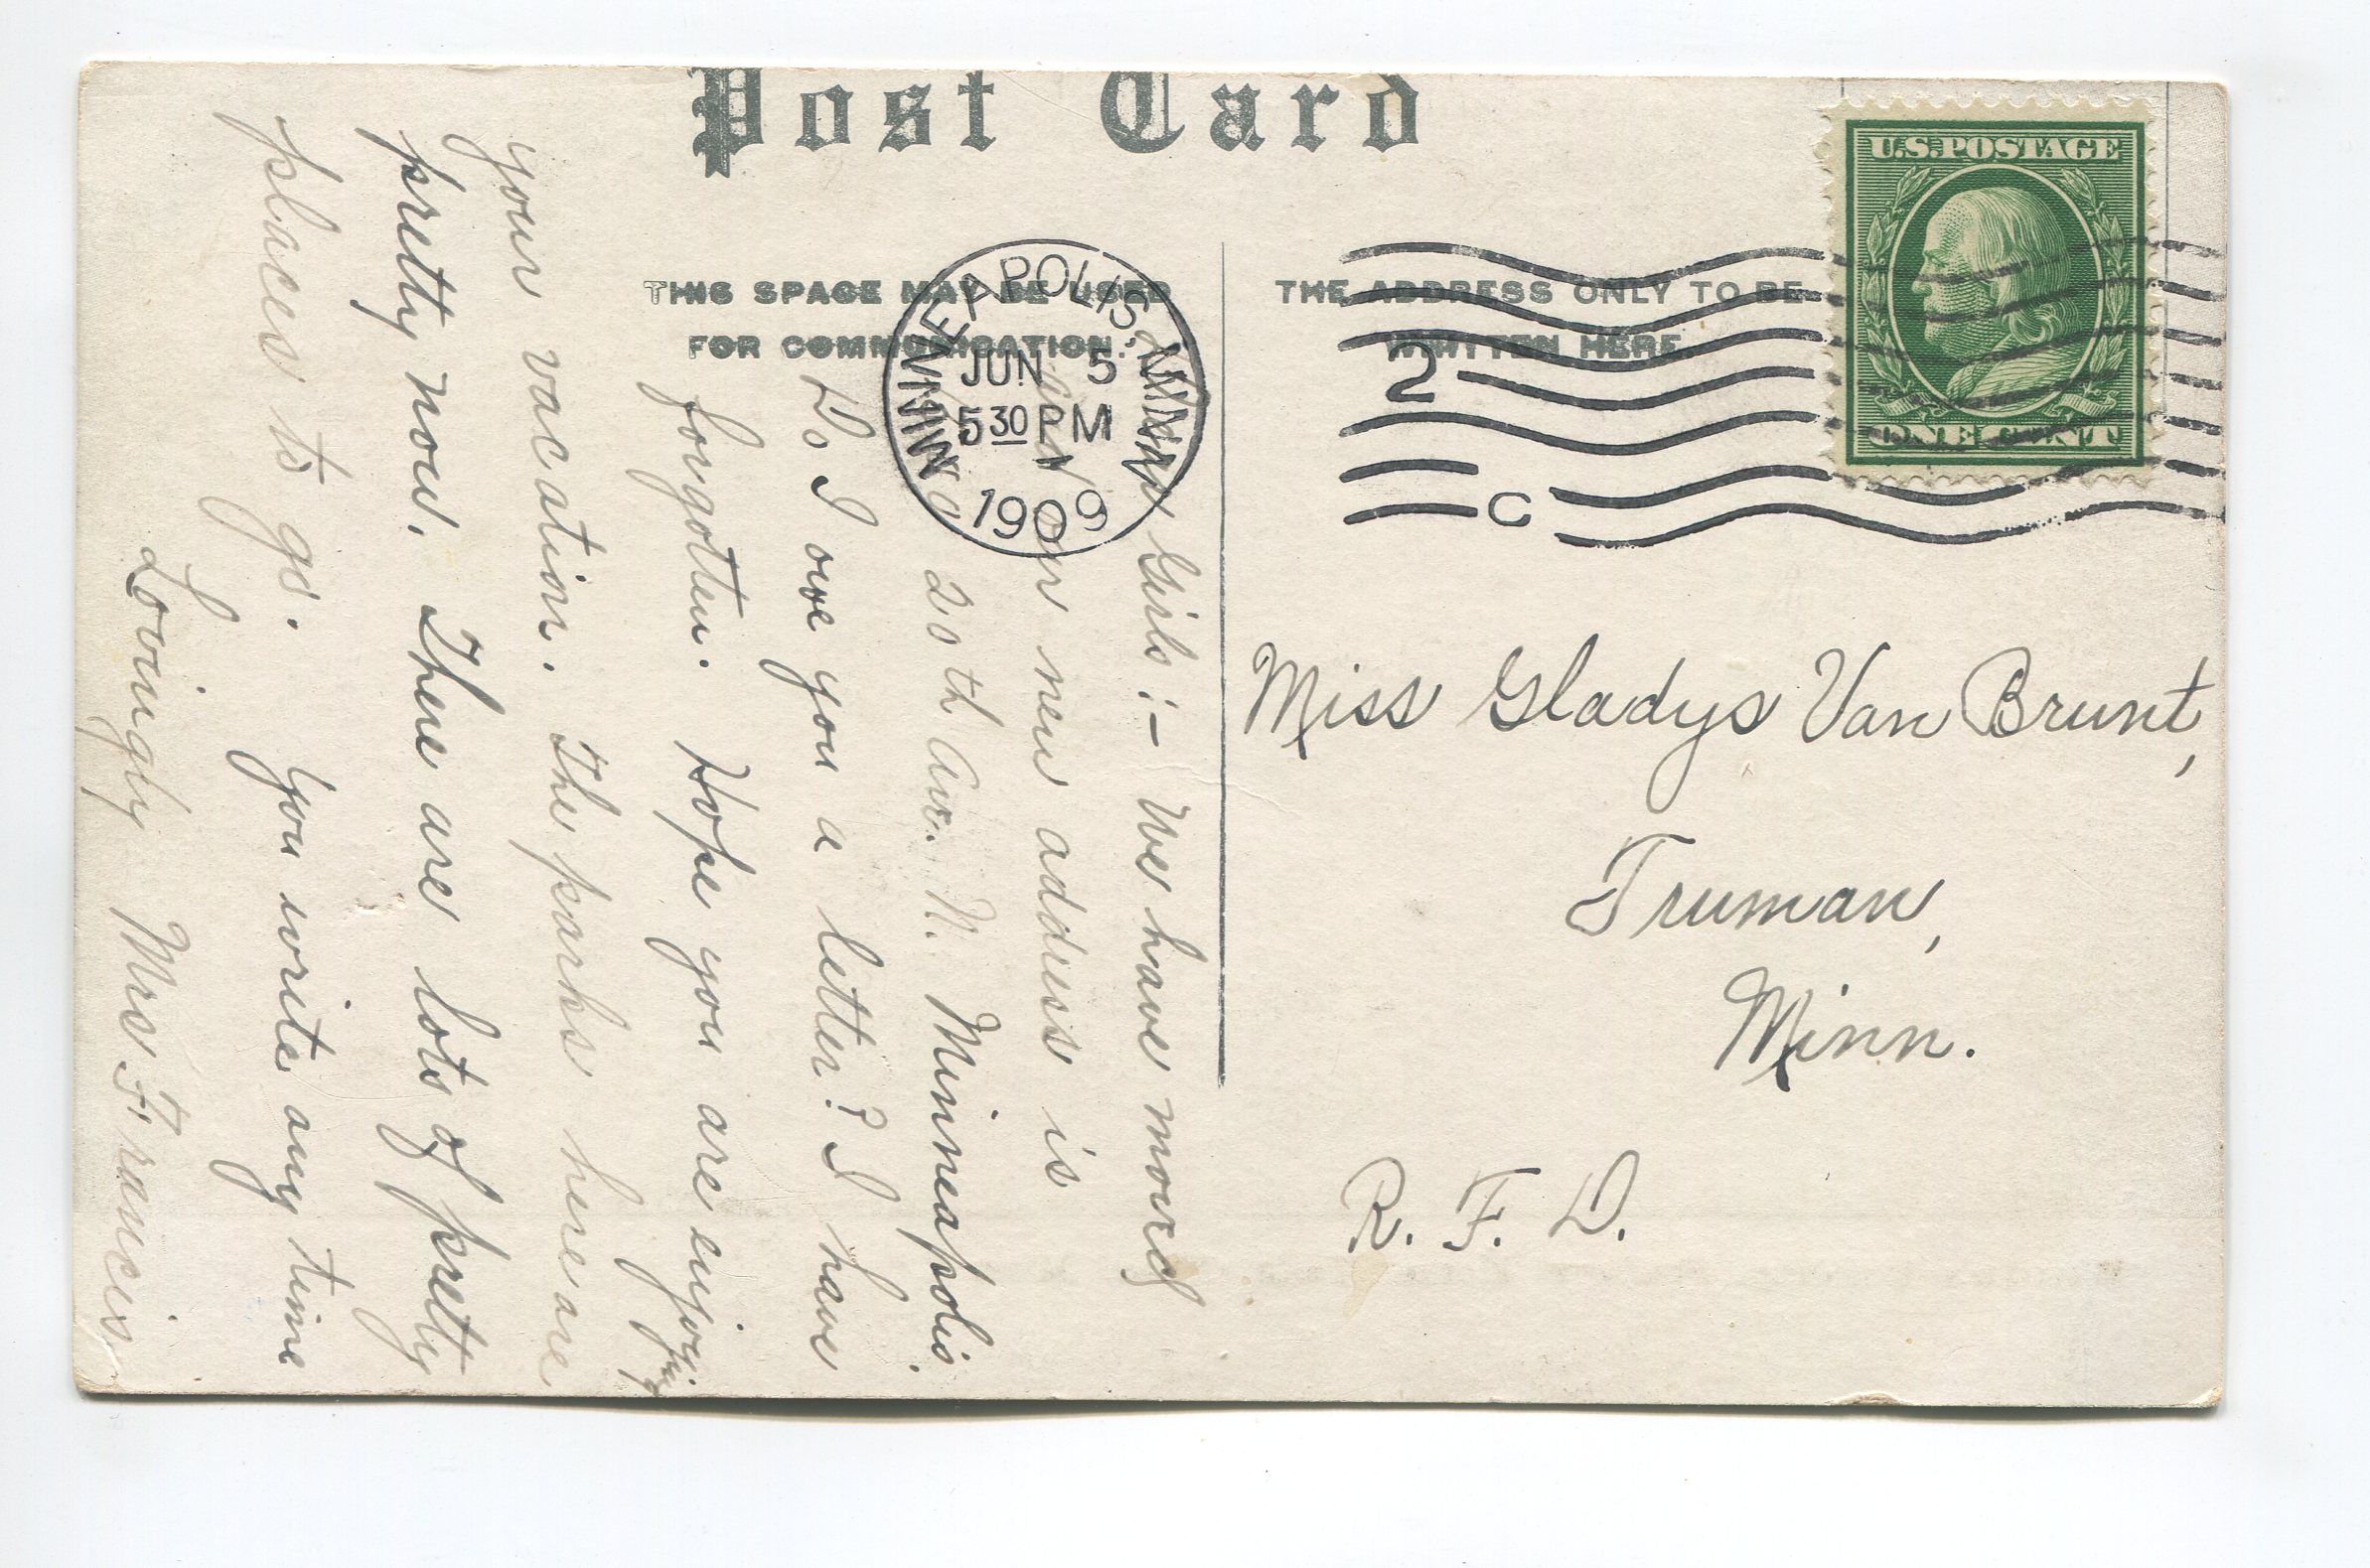 Post Card
THIS SPACE MAY BE USED
FOR COMMUNICATION.
THE ADDRESS ONLY TO BE
WRITTEN HERE.
U.S. POSTAGE
ONE CENT
MINNEAPOLIS MINN.
JUN 5
5 30 PM
1909
2
C
Miss Gladys Van Brunt,
Truman,
Minn.
R. F. D.
Dear Girls:- We have moved
and our new address is
20th Av. N. Minneapolis.
Do I owe you a letter? I have
forgotten. Hope you are enjoying
your vacation. The parks here are
pretty now. There are lots of pretty
places to go. You write any time
Lovingly Mrs Francis